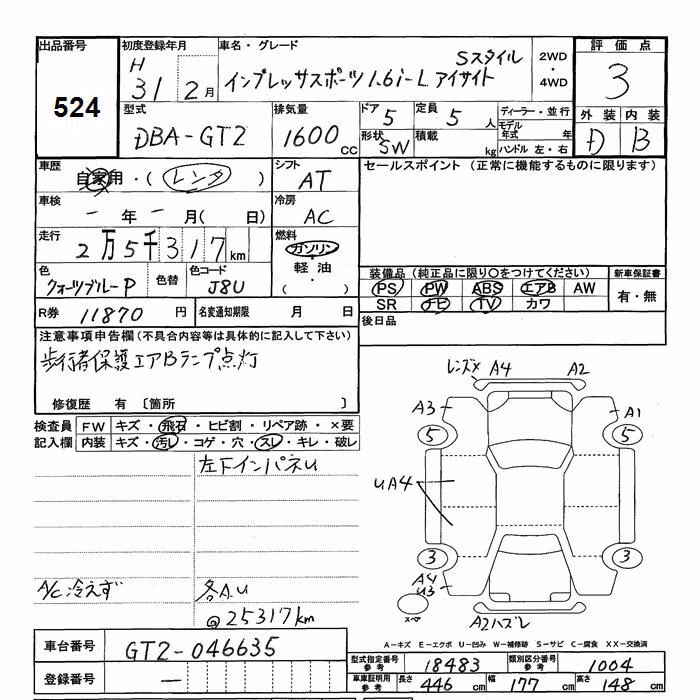 出品番号
524
初度登録年月
H 31 2月
車名・グレード
Sスタイル
インプレッサスポーツ1.6i-Lアイサイト
2WD・4WD
評価点
3
外装 内装
D B
型式
DBA-GT2
排気量
1600cc
ドア 5
定員 5人
形状 SW
積載 kg
ディーラー・並行
モデル年式 年
ハンドル 左・右
車歴
自家用・(レンタ)
シフト
AT
セールスポイント(正常に機能するものに限ります)
車検
ー年ー月(日)
冷房
AC
走行
2万5千317km
燃料
ガソリン
・
軽油
・
( )
色
クォーツブルーP
色替
色コード
J8U
装備品(純正品に限り○をつけてください)
PS PW ABS エアB AW
SR ナビ TV カワ
新車保証書
有・無
R券 11870円
名変通知期限 月 日
後日品
注意事項申告欄(不具合内容等は具体的に記入して下さい)
歩行者保護エアBランプ点灯
修復歴 有〔箇所 〕
検査員記入欄
FW キズ・飛石・ヒビ割・リペア跡・×要
内装 キズ・汚レ・コゲ・穴・スレ・キレ・破レ
左下インパネU
A/C冷えず
各A.U
@25317km
レンズX A4 A2
A3 A1
5 5
UA4
3 3
A4
U3
スペア
A2ハズレ
A-キズ E-エクボ U-凹み W-補修跡 S-サビ C-腐食 XX-交換済
車台番号 GT2-046635
登録番号 ー
型式指定番号参考 18483
類別区分番号参考 1004
車庫証明用参考 長さ 446cm 幅 177cm 高さ 148cm